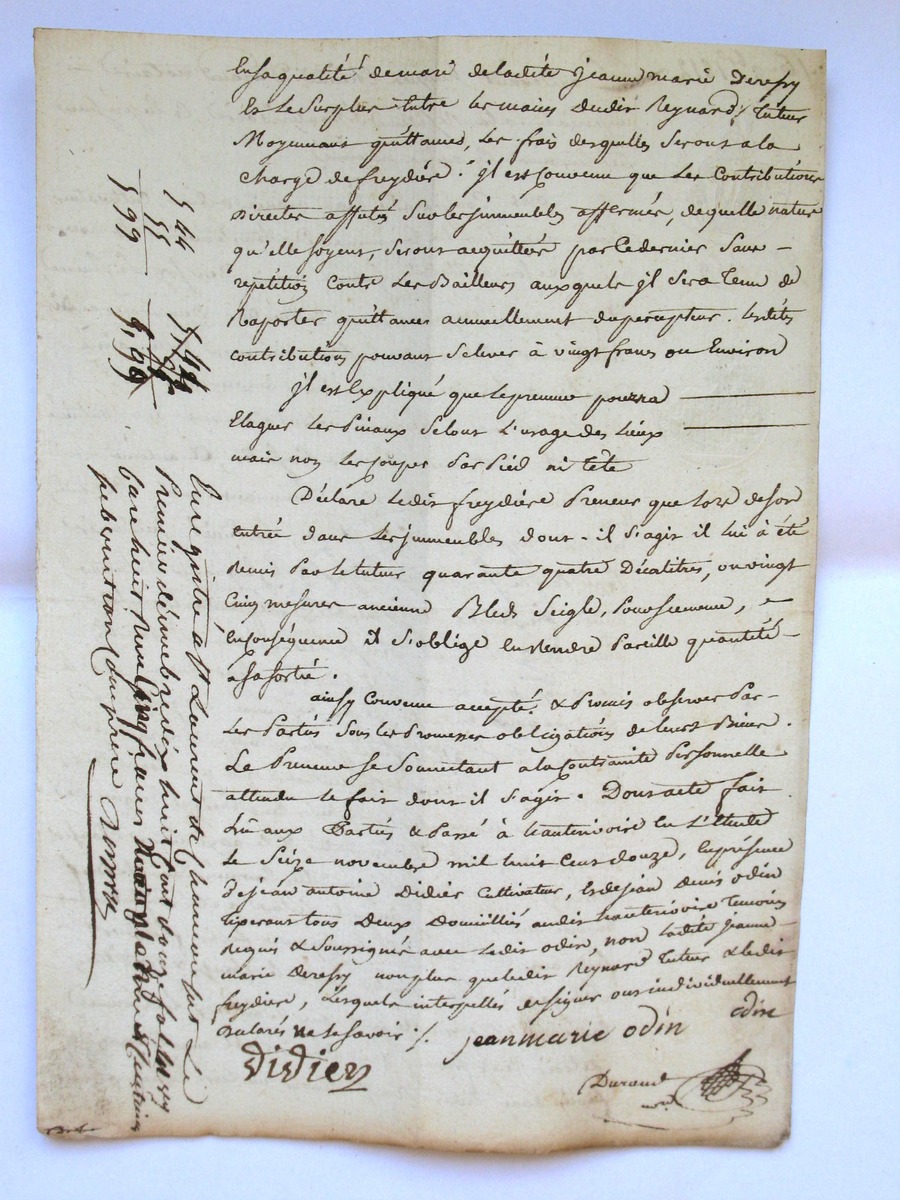 En sa qualité de mari de ladite jeanne marie Deressy
Et le Surplus Entre les mains dudit Reynard, Tuteur
Moyennant quittances, les frais desquelles Seront a la
charge de freydière. jl est Convenu que les Contributions
Directes affutés Sur les jmmeubles affermés, de quelle nature
qu'elle soyent, Seront acquittées par Ce dernier Sans
répétition Contre Les Bailleurs auxquels jl Sera Tenu de
Raporter quittances annuellement du percepteur. Lesdites
contributions pouvant S'elever à vingt francs ou Environ
jl est Expliqué que le preneur pourra
Elaguer les Selont L'usage des Lieux
mais non les Couper Par Pied ni tête
Déclare ledit freydière Preneur que lors de son
Entrée dans les jmmeubles dont il s'agit il lui à été
Remis Par le tuteur quarante quatre Décalitres, ou vingt
Cinq mesures ancienne Bled Seigle, Pour Semence, e
En Conséquence il S'oblige En Rendre Pareille quantité
a sa sortie.
ainsy Convenu accepté & Promis observer Par
Les Parties Sous les Promesses obligations de leurs Biens.
Le Preneur se Soumettant a la Contrainte Personnelle
attendu le fait dont il S'agit. Dont acte fait
Lu aux Parties & Passé à hauterivoire En L'Etude
Le Seize novembre mil huit Cent douze, En présence
de jean antoine Didier Cultivateur, Et de jean Denis odin
tous Deux Domiciliés audit hauterivoire Temoins
Requis & Soussignés avec ledit odin, non ladite jeanne
marie Deressy non plus que ledit Reynard Tuteur & ledit
freydière, Lesquels interpellés de signer ont individuellement
Déclarés ne le Savoir ./.
jean marie odin
odin
didier
Durand
not.
544
55
599
5,99
Enregistré a St Laurent de Chamousset Le
Premier décembre dix huit Cent douze folio
Case huit Reçu Cinq francs